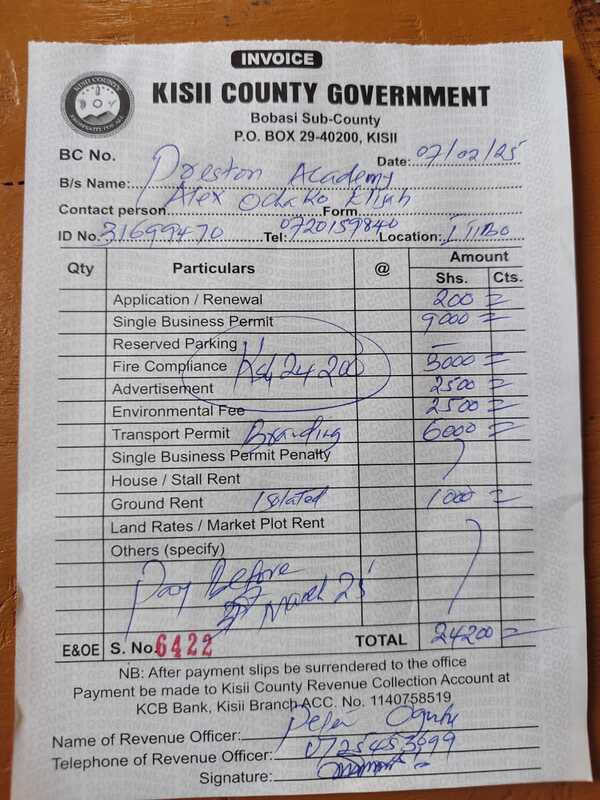 INVOICE
KISII COUNTY
KISII COUNTY GOVERNMENT
Bobasi Sub-County
P.O. BOX 29-40200, KISII
BC No. Date: 07/02/25
B/s Name: Preston Academy
Contact person Alex Ochako Form
ID No. 31699470 Tel: 0720159840 Location:
Qty Particulars @ Amount
Shs. Cts.
Application / Renewal 200 =
Single Business Permit 9000 =
Reserved Parking —
Fire Compliance 3000 =
Ksh 24200
Advertisement 2500 =
Environmental Fee 2500 =
Transport Permit Branding 6000 =
Single Business Permit Penalty
House / Stall Rent
Ground Rent Isolated 1000 =
Land Rates / Market Plot Rent
Others (specify)
Pay Before
March 25
E&OE S. No. 6422 TOTAL 24200 =
NB: After payment slips be surrendered to the office
Payment be made to Kisii County Revenue Collection Account at
KCB Bank, Kisii Branch ACC. No. 1140758519
Name of Revenue Officer: Peter
Telephone of Revenue Officer: 0725453699
Signature: